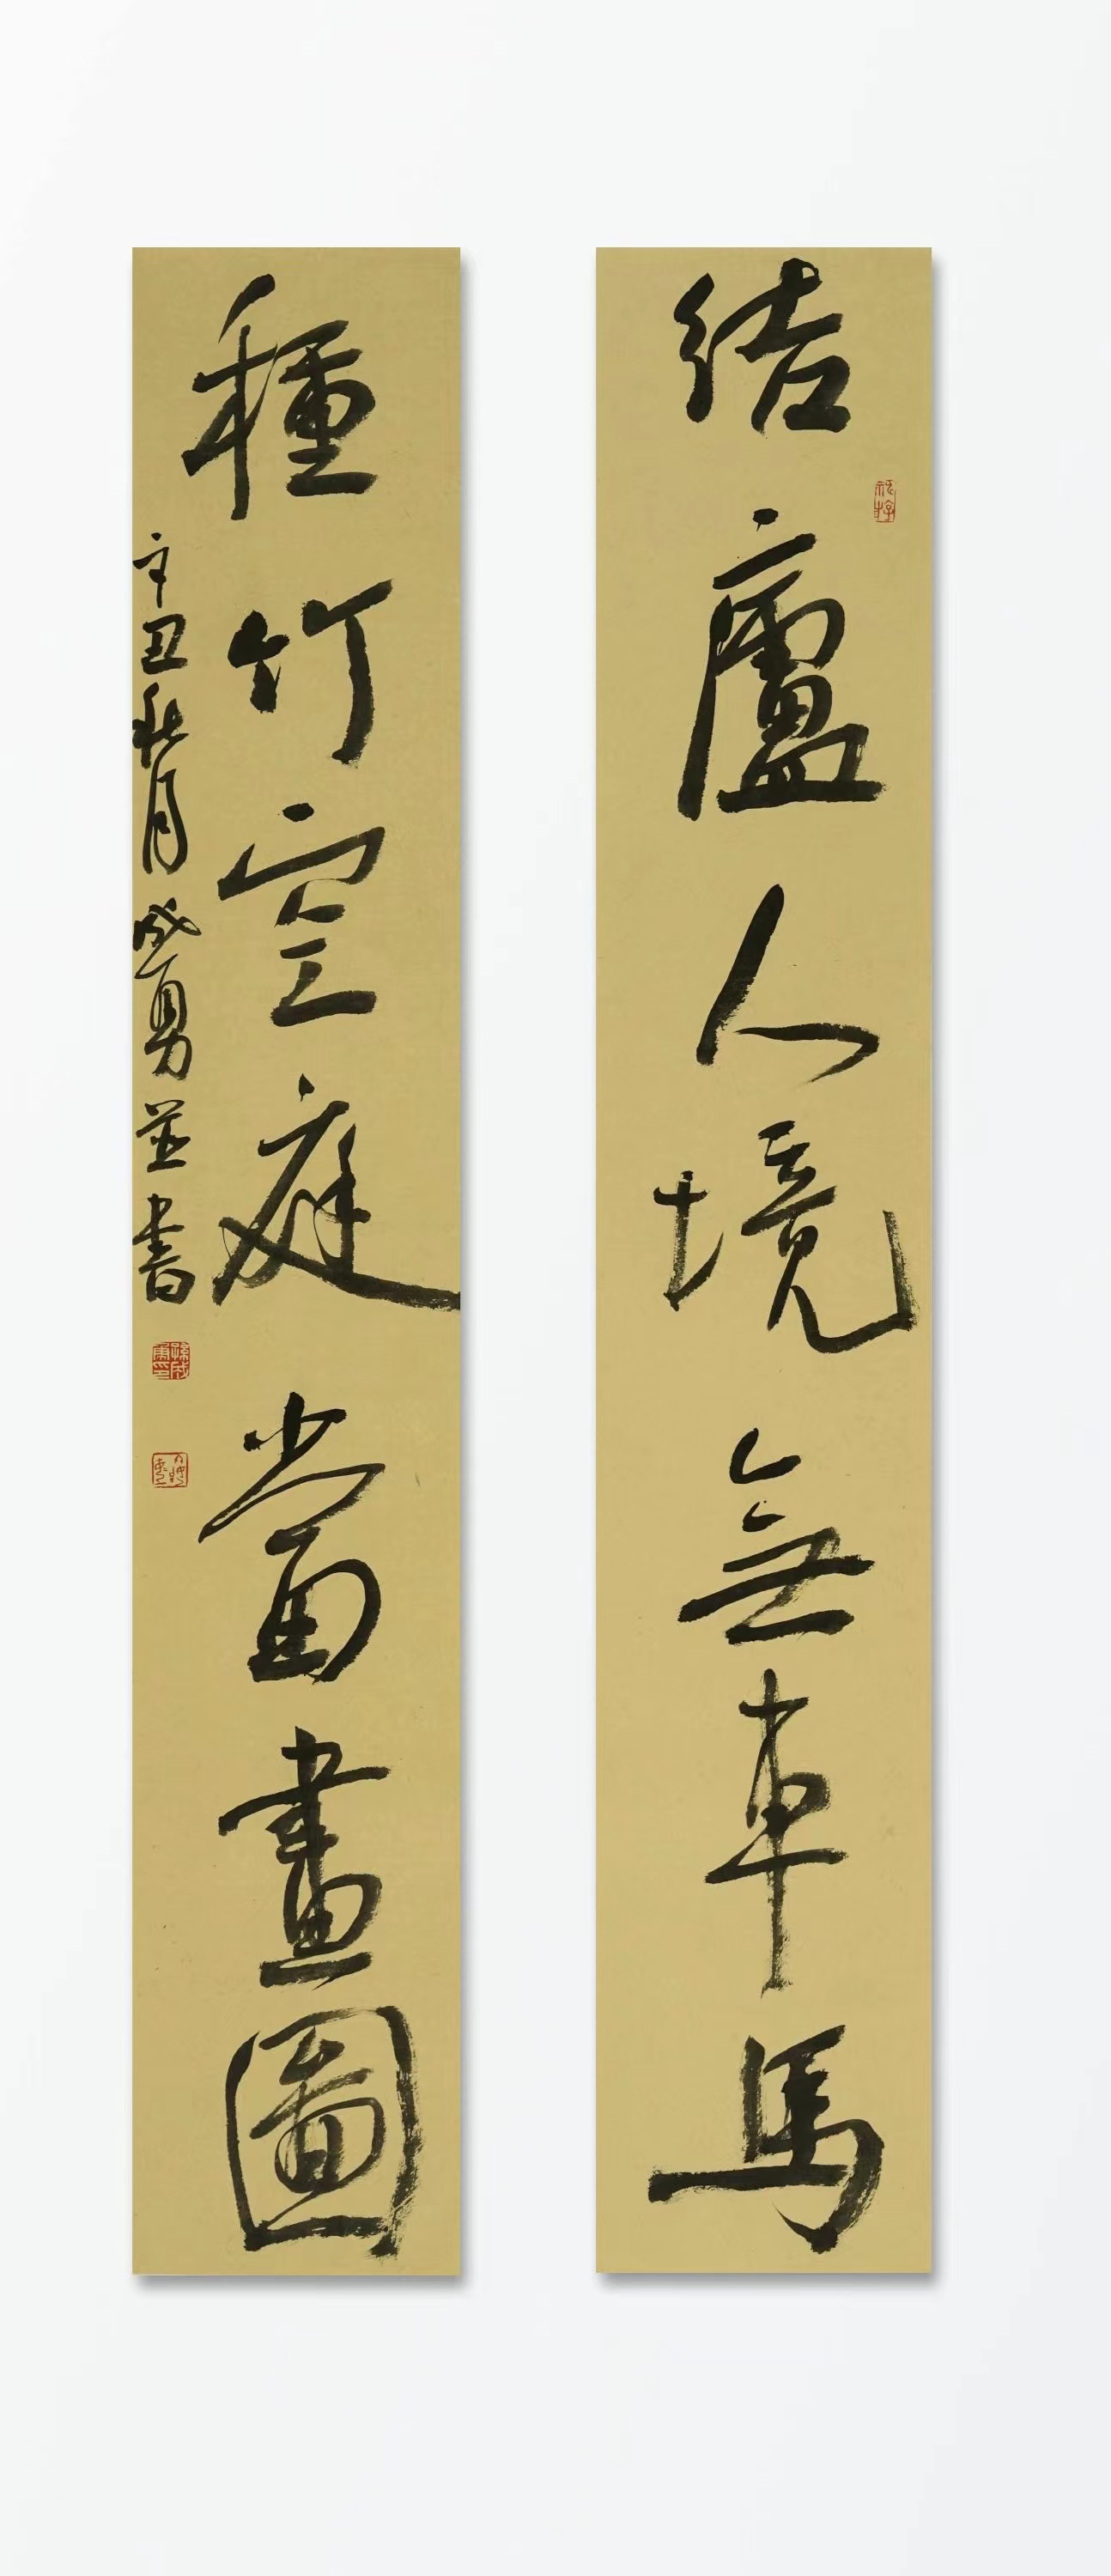 結廬人境無車馬
種竹空庭當畫圖
辛丑秋月成勇並書